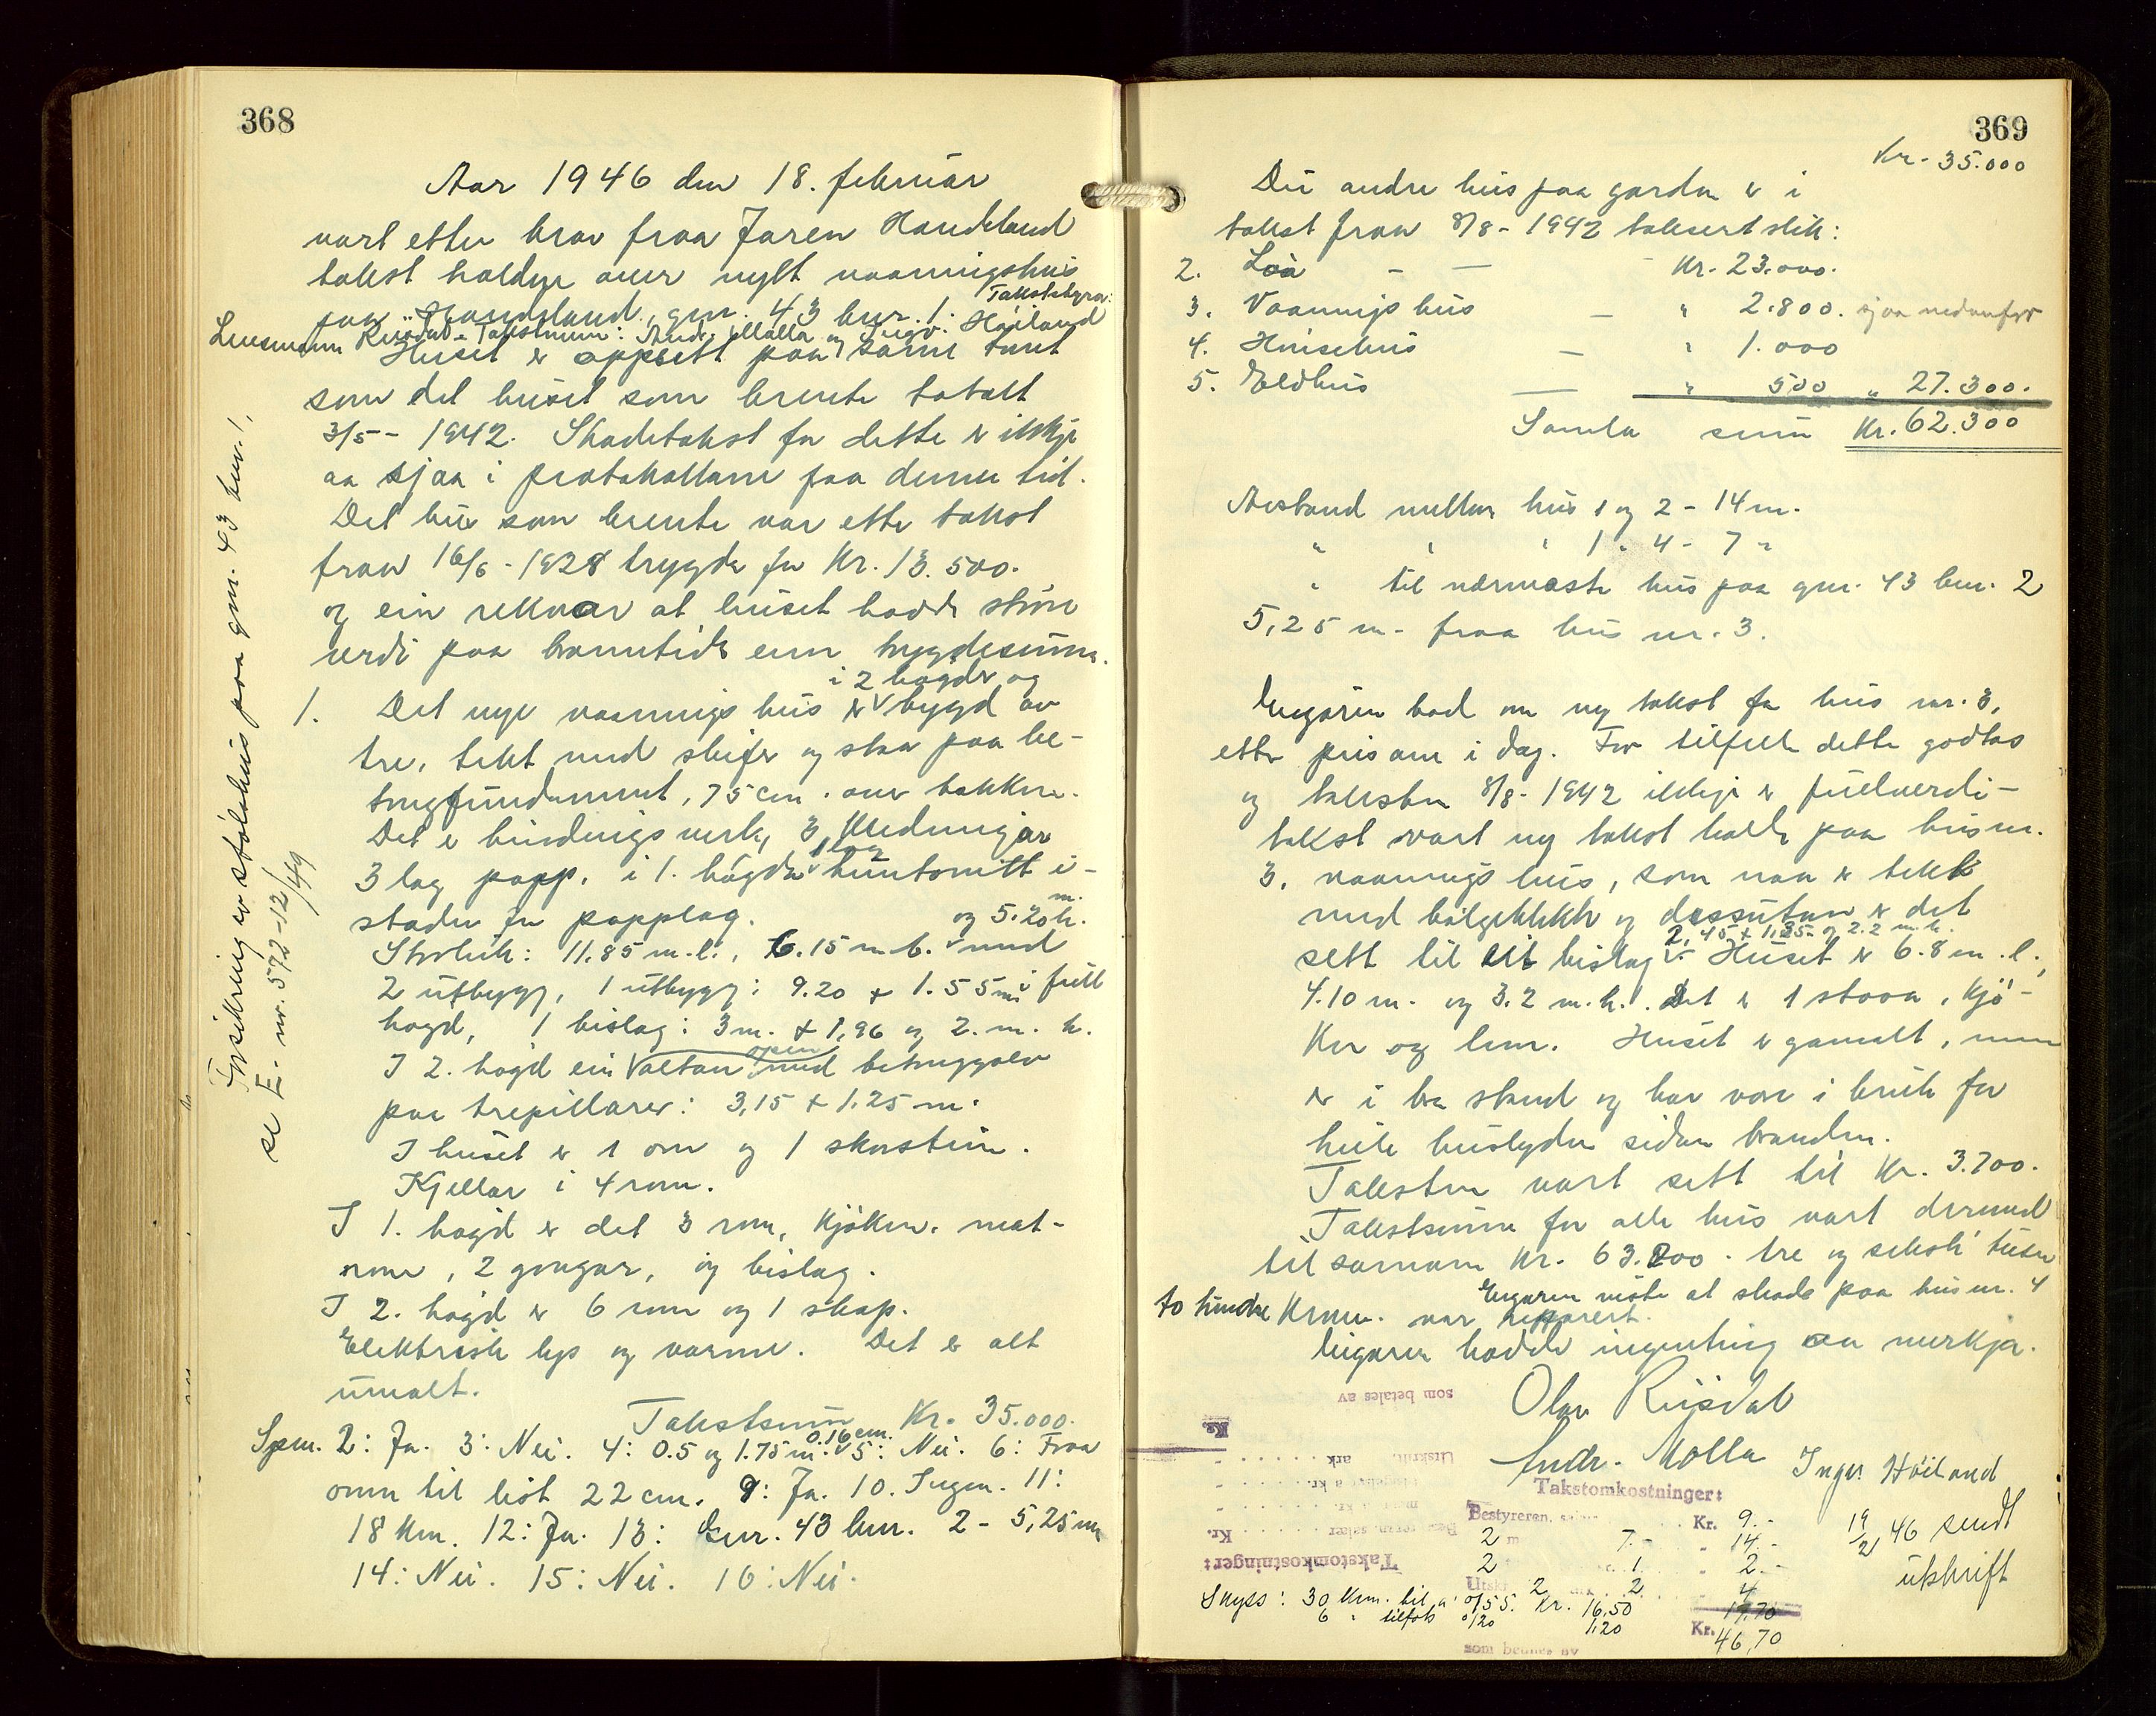 368
Aar 1946 den 18. februar
vart etter krav fraa Jaren Handeland
takst haldge over nytt vaaningshus
paa "Handeland", gnr. 43 bnr. 1. Takststyrar:
Lensmann Riisdal. Takstmenn: Andr. Molla og Ingv. Höiland
Huset er oppsett paa same tomt
som det huset som brente totalt
3/5 - 1942. Skadetakst for dette er ikkje
aa sjaa i protokollane paa denne tid.
Det hus som brente var etter takst
fraa 16/6 - 1928 trygda for Kr. 13.500.
og ein reknar at huset hadde större
verdi paa branntida enn trygdesumen.
1. Det nye vaanings hus er i 2 högder og bygd av
tre, tekt med skifer og staar paa be-
tongfundament, 75 cm. over bakken.
Det er bindingsverk, 3 kledningar
3 lag papp, i 1. högda 1 lag huntonitt i-
staden for papplag.
Storleik: 11.85 m. l., 6.15 m b. og 5.20 m. h. med
2 utbygg, 1 utbygg: 9.20 + 1.55 m i full
högd, 1 bislag: 3 m. + 1,96 og 2. m. h.
I 2. högd ein open altan med betonggolv
paa trepillarer: 3,15 + 1.25 m.
I huset er 1 omn og 1 skorstein.
Kjellar i 4 rom.
I 1. högd er det 3 rom, kjöken, mat-
rom, 2 gangar, og bislag.
I 2. högd er 6 rom og 1 skap.
Elektrisk lys og varme. Det er alt
umalt.
Takstsum Kr. 35.000.
Spm. 2: Ja. 3: Nei. 4: 0.5 og 1.75 m. 0.16 cm. 5: Nei. 6: Fraa
omn til 22 cm. 9: Ja. 10. Ingen. 11:
18 km. 12: Ja. 13: Gnr. 43 bnr. 2 - 5,25 m
14: Nei. 15: Nei. 16: Nei.
Forsikring av stölshus paa gnr. 43 bnr. 1,
se E. nr. 572-12/1/49
369
Kr. 35.000
Dei andre hus paa garden er i
takst fraa 8/8 - 1942 taksert slik:
2. Löa - - - Kr. 23.000.
3. Vaanings hus - " 2.800. sjaa nedanfor
4. Hönsehus - " 1.000
5. Eldhus - " 500 " 27.300.
Samla sum Kr. 62.300
Avstand mellom hus 1 og 2 - 14 m.
" " " 1 " 4 - 7 "
" til nærmaste hus paa gnr. 43 bnr. 2
5,25 m. fraa hus nr. 3.
Eigaren bad om ny takst for hus nr. 3,
etter prisane i dag. For tilfelle dette godtas
og taksten 8/8 - 1942 ikkje er fullverdi-
takst vart ny takst halde paa hus nr.
3, vaanings hus, som naa er tekt
med bölgeblekk og dessutan er det
sett til eit bislag 2,45 + 1,35 og 2.2 m. h. Huset er 6.8 m. l.,
4.10 m. og 3.2 m. h. Det er 1 stova, kjö-
ken og lem. Huset er gamalt, men
er i bra stand og har vore i bruk for
heile huslyden sidan branden.
Taksten vart sett til Kr. 3.700.
Takstsumen for alle hus vart dermed
til saman Kr. 63.200 - tre og seksti tusen
to hundre kroner. Eigaren viste at skade paa hus nr. 4
var reparert.
Eigaren hadde ingenting aa merkja.
Olav Riisdal
Andr. Molla Ingv Höiland
som betales av
Kr.
Utskrift. ark
Kr.
Takstomkostninger:
Takstomkostninger:
Bestyreren, Kr. 9.-
2 m 7.- " 14.-
2 1. " 2.-
Utskr 2 2. 4
17,70
Skyss: 30 km. til a 0/55. Kr. 16,50
6 " tilfots 0/20 1,20
Kr. 46,70
som betales av
19/2 46 sendt
utskrift